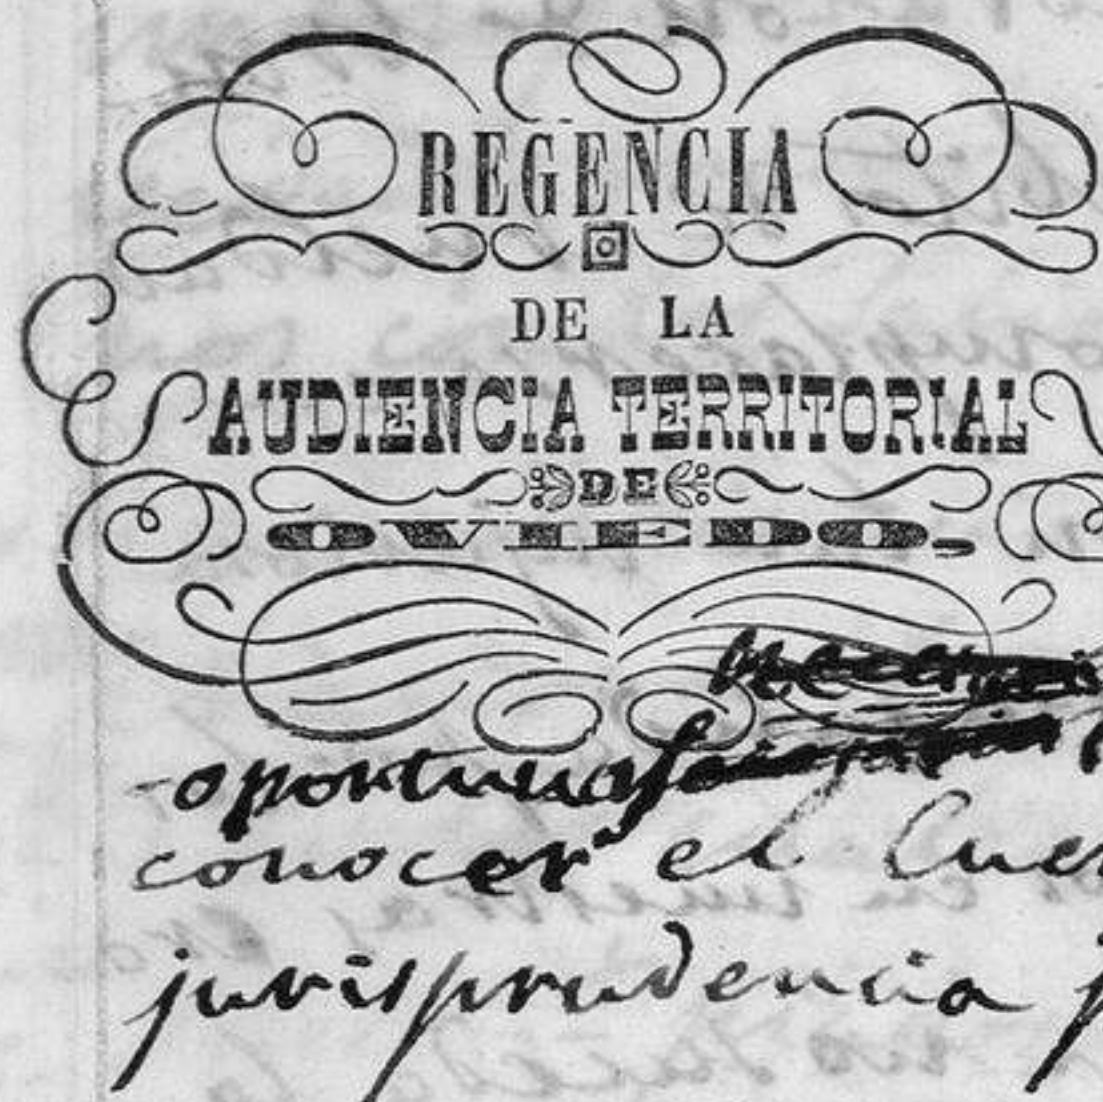 REGENCIA
DE LA
AUDIENCIA TERRITORIAL
DE
OVIEDO.
oportuna
conocer el
jurisprudencia